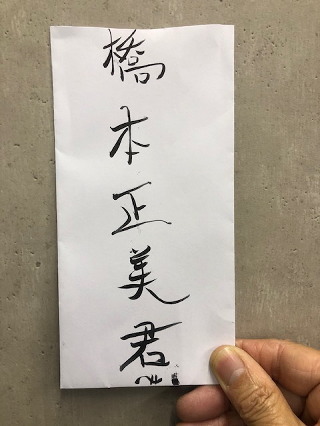 橋本正美君